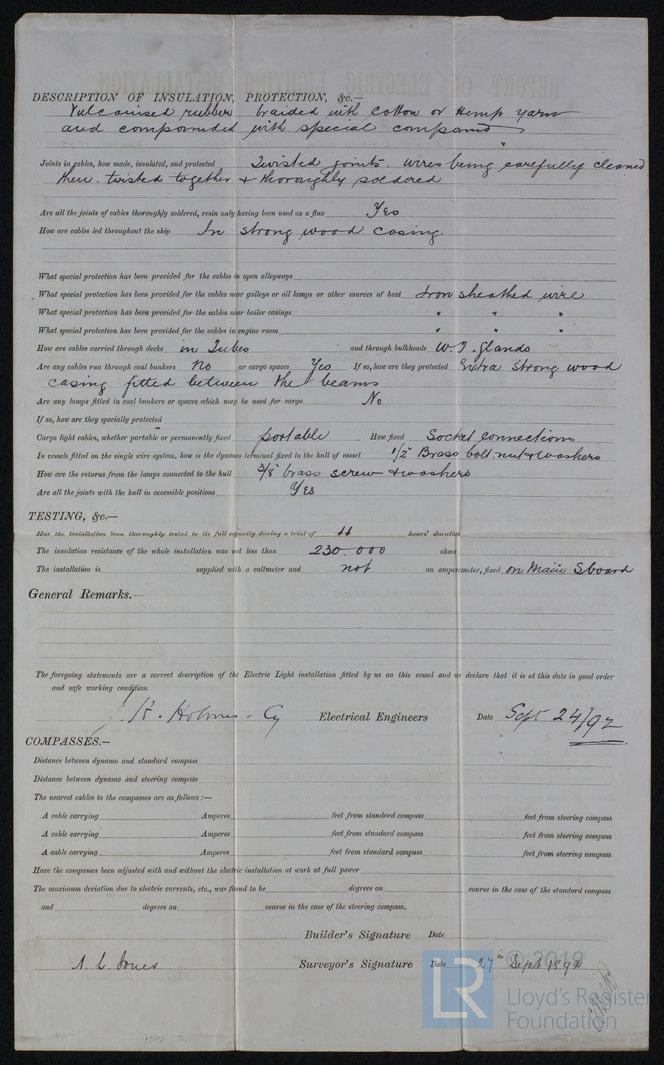 DESCRIPTION OF INSULATION, PROTECTION, &c.—
Vulcanised rubber braided with cotton or Hemp yarn
and compounded with special compound
Joints in cables, how made, insulated, and protected Twisted joints. wires being carefully cleaned
then twisted together & thoroughly soldered
Are all the joints of cables thoroughly soldered, resin only having been used as a flux Yes
How are cables led throughout the ship In strong wood casing
What special protection has been provided for the cables in open alleyways
What special protection has been provided for the cables near galleys or oil lamps or other sources of heat Iron sheathed wire
What special protection has been provided for the cables near boiler casings " " "
What special protection has been provided for the cables in engine room " " "
How are cables carried through decks in Tubes and through bulkheads W.T. glands
Are any cables run through coal bunkers No or cargo spaces Yes If so, how are they protected Extra strong wood
casing fitted between the beams
Are any lamps fitted in coal bunkers or spaces which may be used for cargo No
If so, how are they specially protected
Cargo light cables, whether portable or permanently fixed portable How fixed Socket connections
In vessels fitted on the single wire system, how is the dynamo terminal fixed to the hull of vessel 1/2" Brass bolt. nut & washers
How are the returns from the lamps connected to the hull 3/8 brass screw & washers
Are all the joints with the hull in accessible positions Yes
TESTING, &c.—
Has the installation been thoroughly tested to its full capacity during a trial of hours' duration
The insulation resistance of the whole installation was not less than 230.000 ohms
The installation is supplied with a voltmeter and not an amperemeter, fixed on Main Sboard
General Remarks.—
The foregoing statements are a correct description of the Electric Light installation fitted by us on this vessel and we declare that it is at this date in good order
and safe working condition.
J. H. Holmes & Cy Electrical Engineers Date Sept 24/92
COMPASSES.—
Distance between dynamo and standard compass
Distance between dynamo and steering compass
The nearest cables to the compasses are as follows:—
A cable carrying Amperes feet from standard compass feet from steering compass
A cable carrying Amperes feet from standard compass feet from steering compass
A cable carrying Amperes feet from standard compass feet from steering compass
Have the compasses been adjusted with and without the electric installation at work at full power
The maximum deviation due to electric currents, etc., was found to be degrees on course in the case of the standard compass
and degrees on course in the case of the steering compass.
Builder's Signature Date
A. L. Jones Surveyor's Signature Date 27th Sept 1892
LR © 2019
Lloyd's Register
Foundation